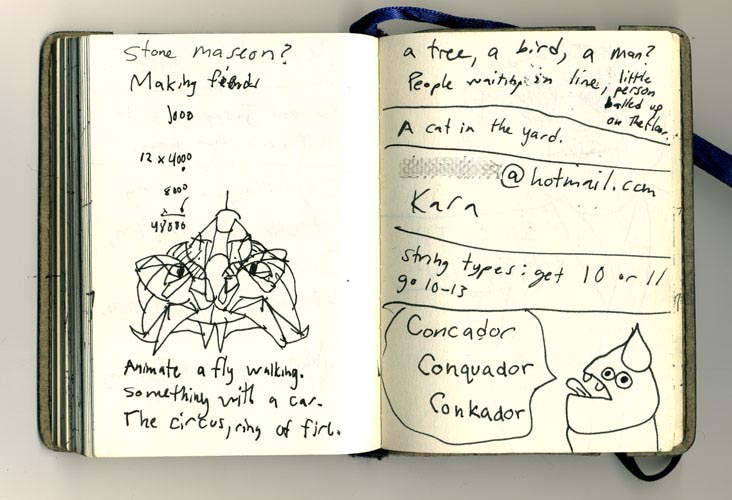 Stone mason?
Making
1000
12 x 4000
8000
48000
Animate a fly walking.
Something with a car.
The circus, ring of fire.
a tree, a bird, a man?
People waiting in line, little
person
balled up
on the floor.
A cat in the yard.
@hotmail.com
Kara
string types: get 10 or 11
go 10-13
Concador
Conquador
Conkador